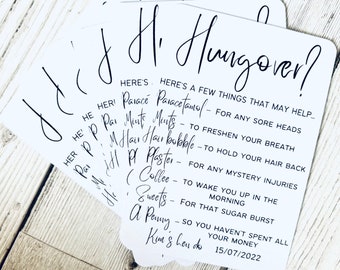 Hi, Hungover?
HERE'S A FEW THINGS THAT MAY HELP...
Paracetamol - FOR ANY SORE HEADS
Mints - TO FRESHEN YOUR BREATH
Hairbobble - TO HOLD YOUR HAIR BACK
Plaster - FOR ANY MYSTERY INJURIES
Coffee - TO WAKE YOU UP IN THE
MORNING
Sweets - FOR THAT SUGAR BURST
A Penny - SO YOU HAVEN'T SPENT ALL
YOUR MONEY
Kim's hen do 15/07/2022